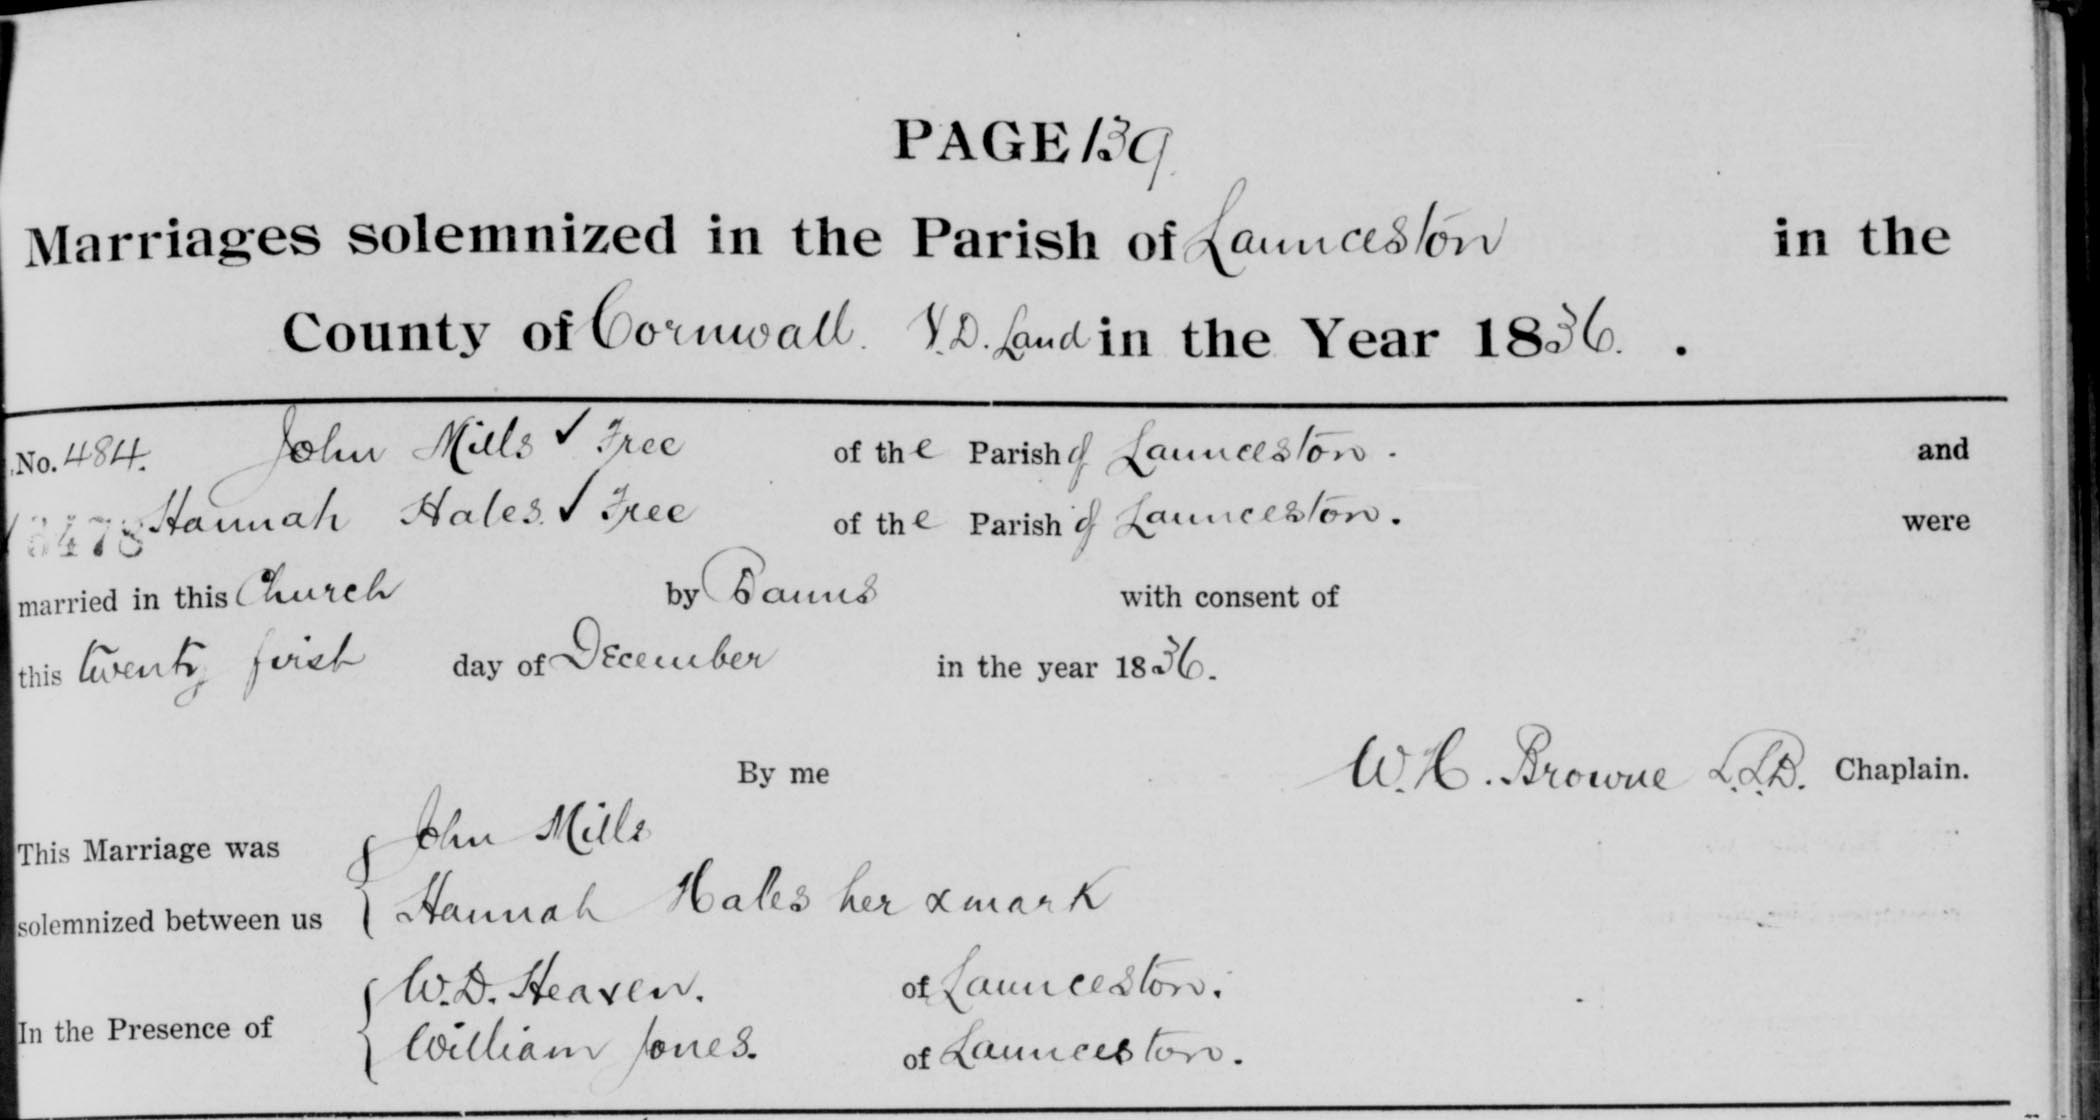 PAGE 139.
Marriages solemnized in the Parish of Launceston in the
County of Cornwall. V.D. Land in the Year 1836.
No. 484. John Mills ✓ Free of the Parish of Launceston. and
3478 Hannah Hales. ✓ Free of the Parish of Launceston. were
married in this Church by Banns with consent of
this twenty first day of December in the year 1836.
By me W. H. Browne L.L.D. Chaplain.
This Marriage was { John Mills
solemnized between us { Hannah Hales her x mark
W.D. Heaven. of Launceston.
In the Presence of { William Jones. of Launceston.